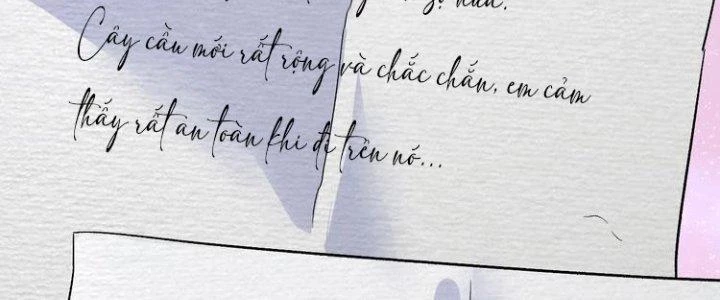 Cây cầu mới rất rộng và chắc chắn, em cảm
thấy rất an toàn khi đi trên nó...